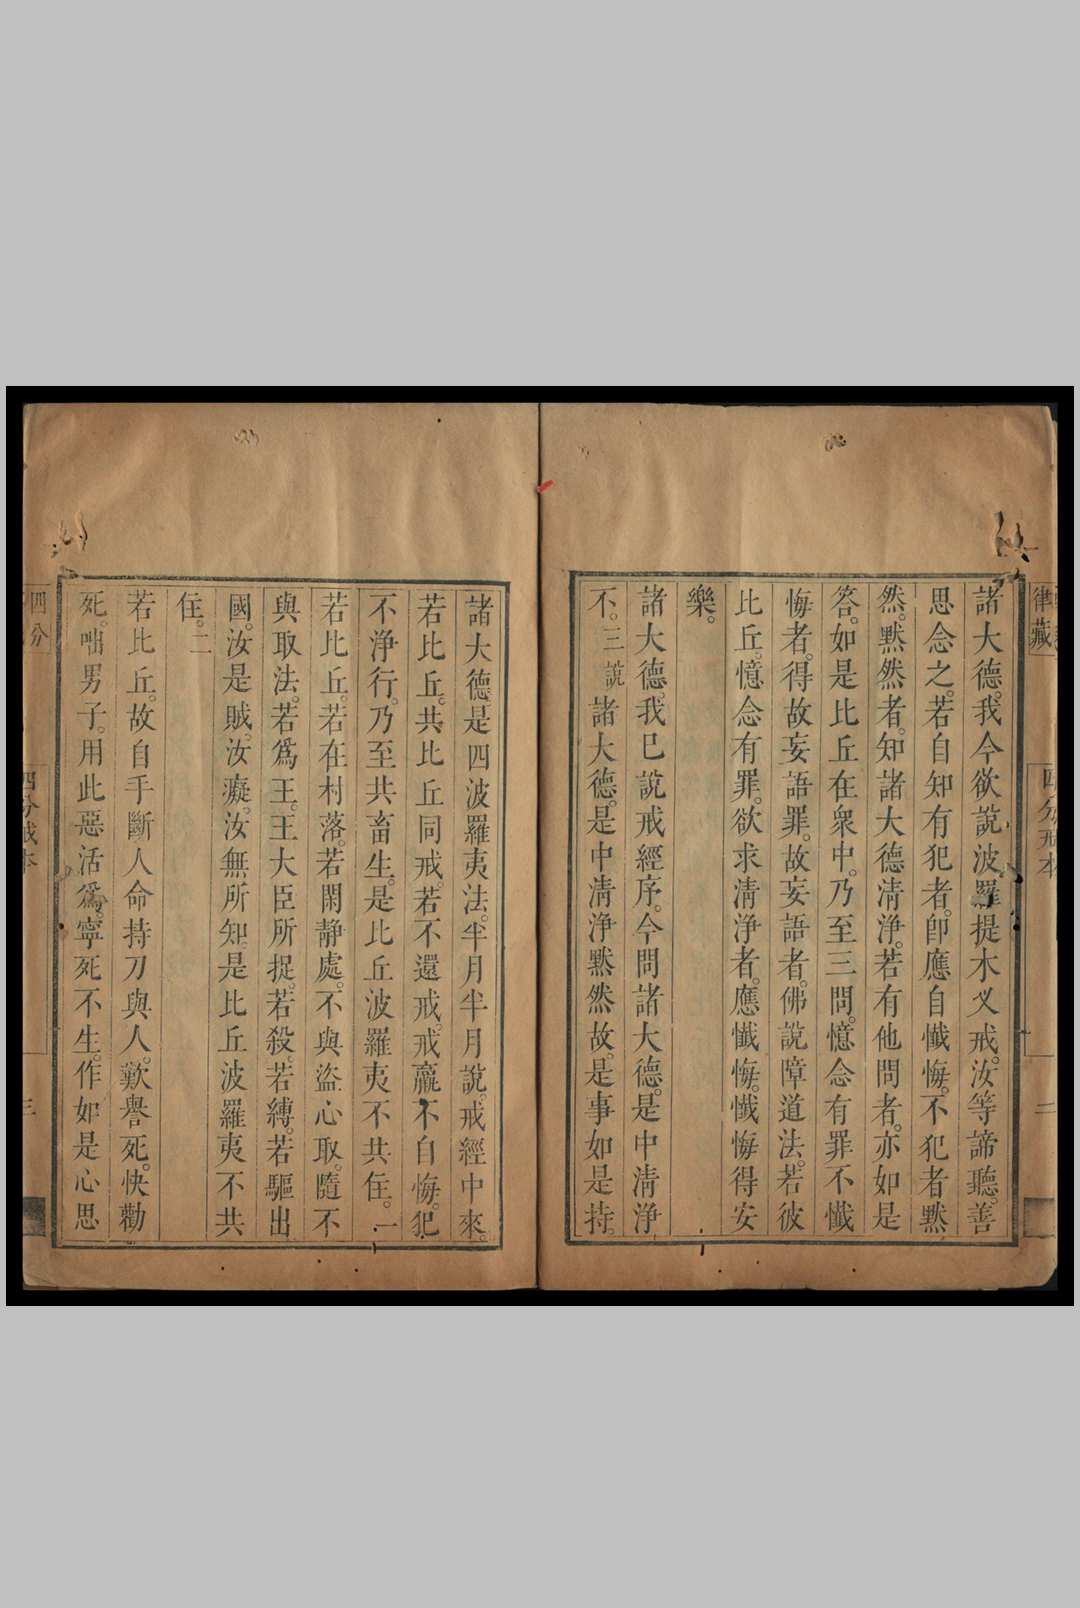 律藏
四分戒本
二
諸大德。我今欲說波羅提木义戒。汝等諦聽。善
思念之。若自知有犯者。卽應自懺悔。不犯者默
然。默然者。知諸大德清淨。若有他問者。亦如是
答。如是比丘在衆中。乃至三問。憶念有罪不懺
悔者。得故妄語罪。故妄語者。佛說障道法。若彼
比丘。憶念有罪。欲求清淨者。應懺悔。懺悔得安
樂。
諸大德。我已說戒經序。今問諸大德。是中清淨
不。三說 諸大德。是中清淨默然故。是事如是持。
諸大德。是四波羅夷法。半月半月說。戒經中來。
若比丘。共比丘同戒。若不還戒。戒羸不自悔。犯
不淨行。乃至共畜生。是比丘波羅夷不共住。一
若比丘。若在村落。若閑靜處。不與盜心取。隨不
與取法。若爲王。王大臣所捉。若殺。若縛。若驅出
國。汝是賊。汝癡。汝無所知。是比丘波羅夷不共
住。二
若比丘。故自手斷人命持刀與人。歎譽死。快勸
死。咄男子。用此惡活爲。寧死不生。作如是心思
四分
四分戒本
三